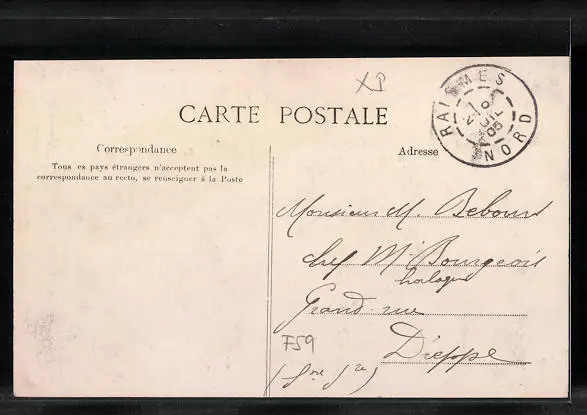 XP
CARTE POSTALE
RAISMES
NORD
JUIL
05
Correspondance
Tous les pays étrangers n'acceptent pas la
correspondance au recto, se renseigner à la Poste
Adresse
Monsieur M. Bebour
chef Mr Bourgeois
horloger
Grand rue
F59
Dieppe
(Sne Ire)